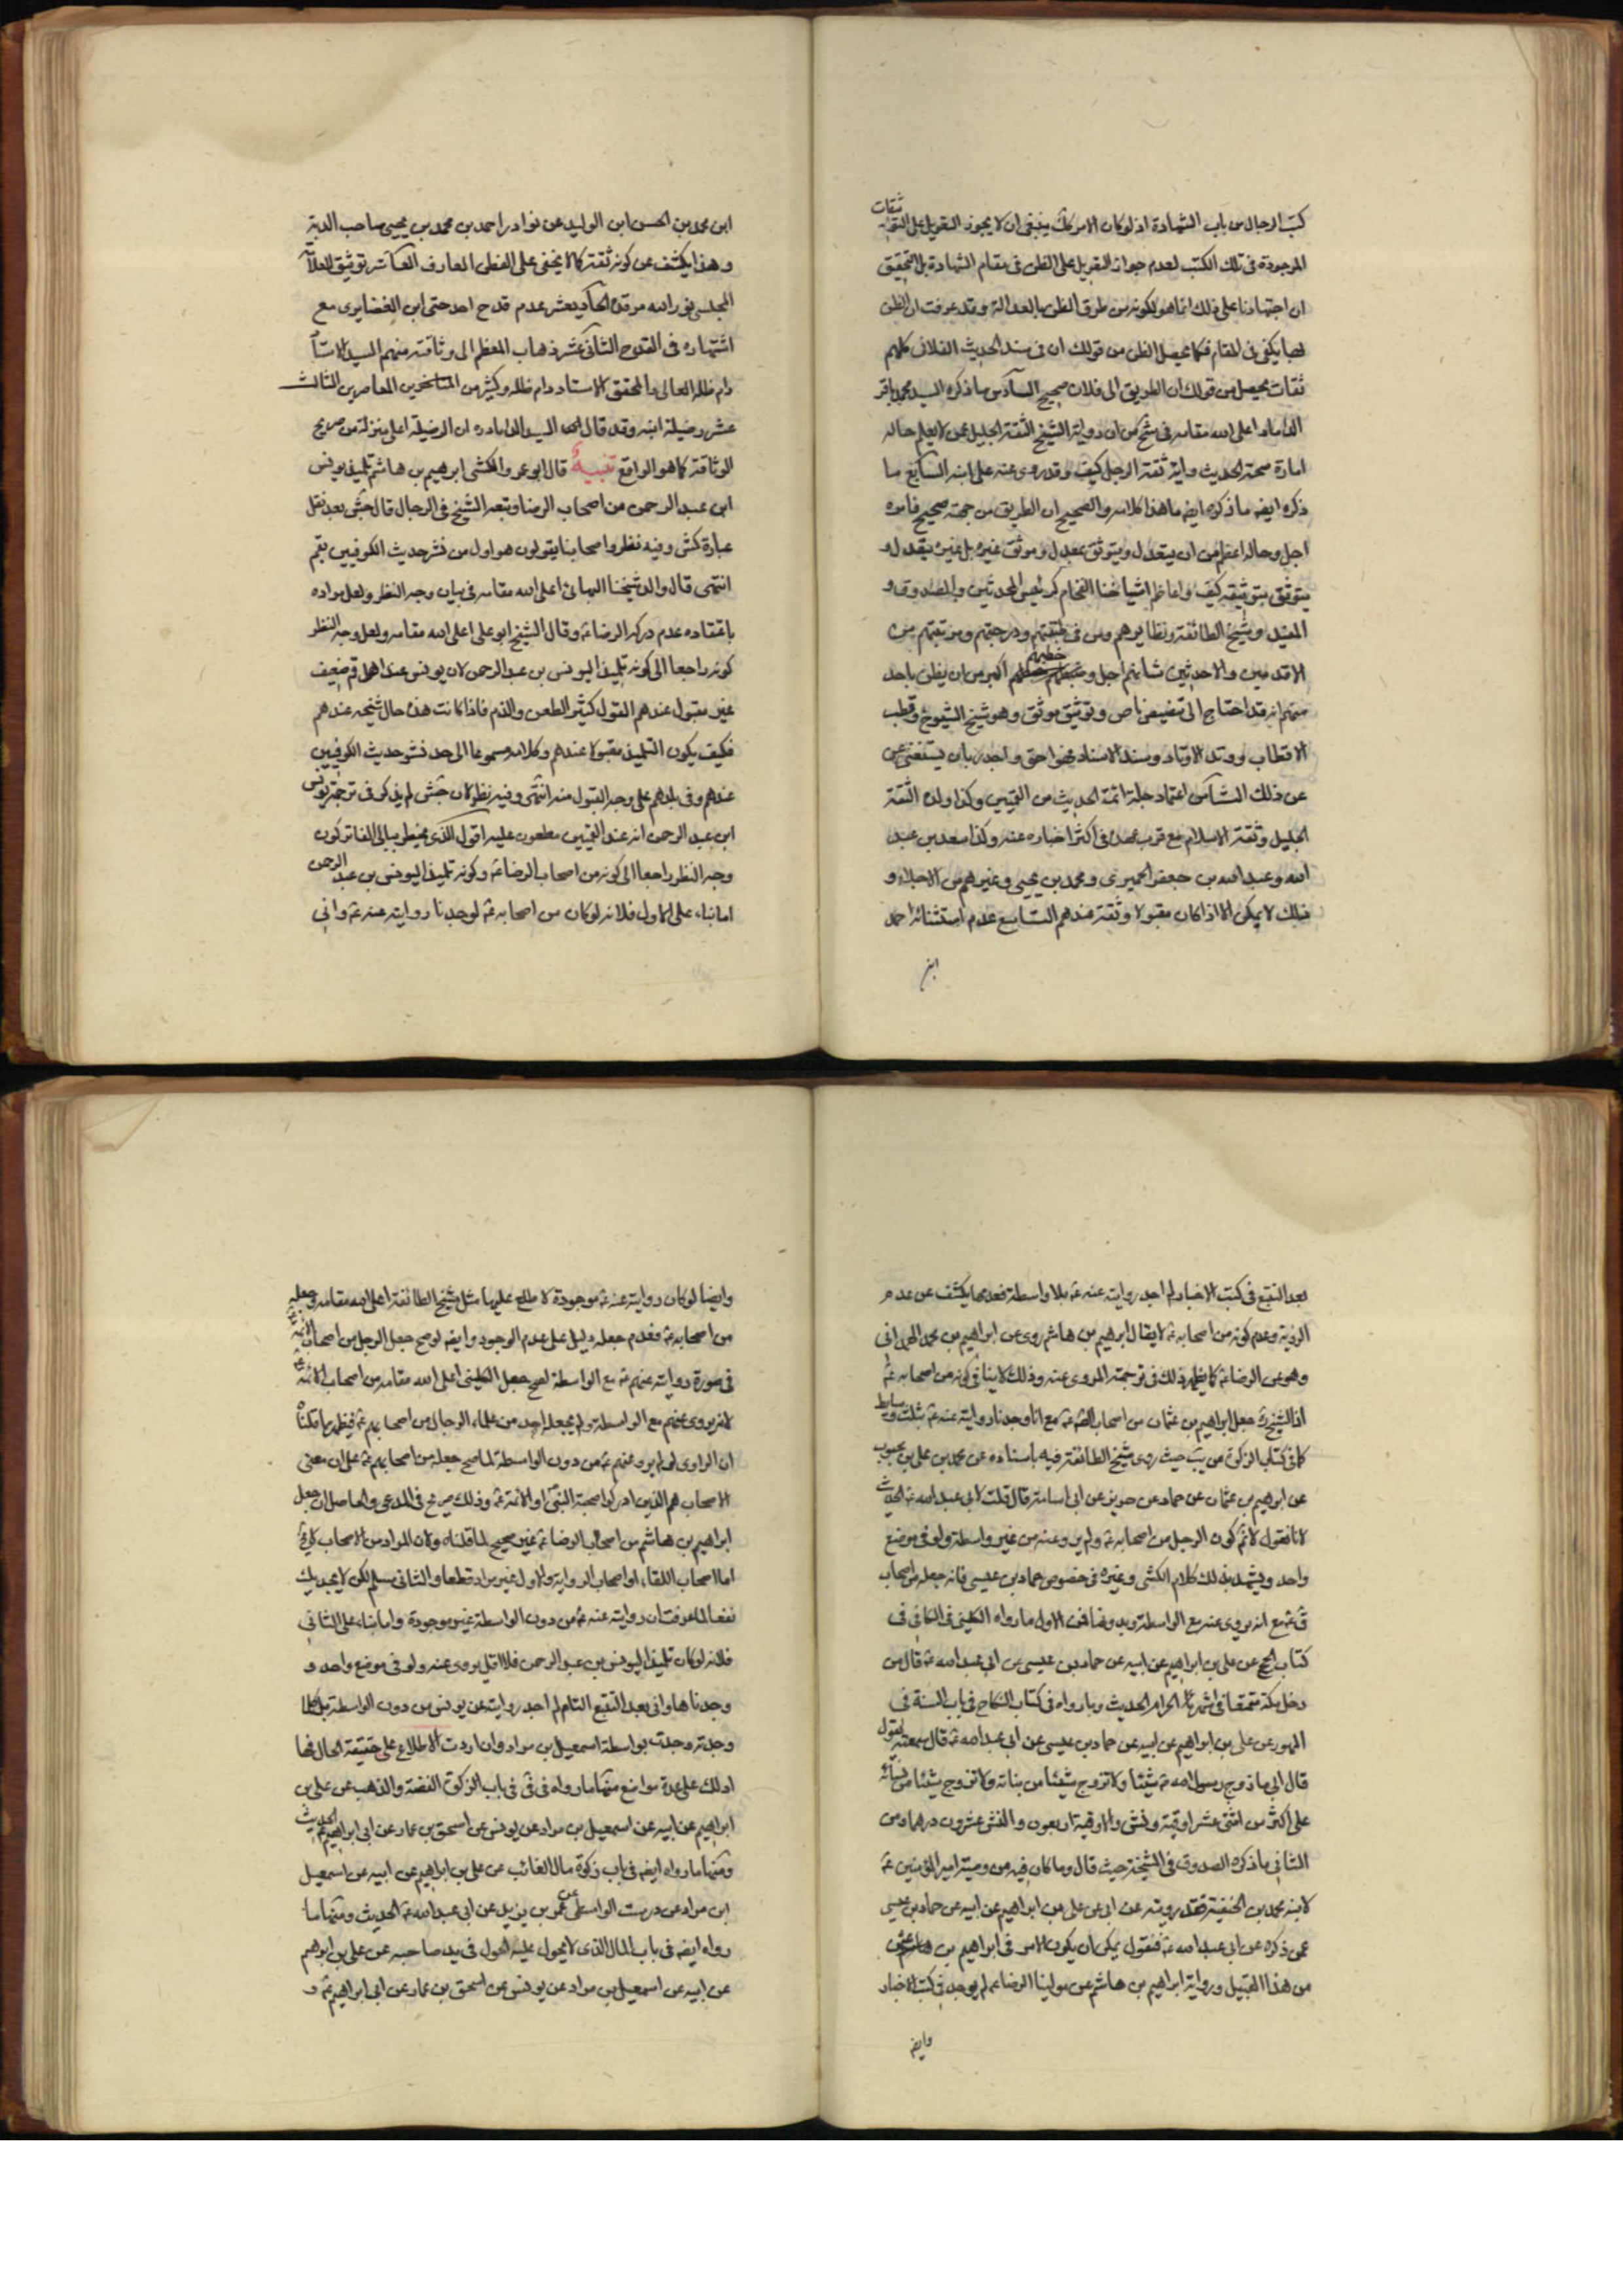 كتب الرجال من باب الشهادة اذ لو كان الامر كك ينبغى ان لا يجوز التعويل على
ثقات
الموجودة فى تلك الكتب لعدم جواز التعويل على الظن فى مقام الشهادة بل التحقيق
ان اجتهادنا على ذلك انما هو لكونه من طرق الظن بالعدالة وقد عرفت ان الظن
بها يكفى فى المقام فكما يحصل الظن من قولك ان فى سند الحديث الفلان كلهم
ثقات يحصل من قولك ان الطريق الى فلان صحيح السادس ما ذكره السيد محمد باقر
الداماد اعلى الله مقامه فى من ان رواية الشيخ الثقة الجليل عمن لا يعلم حاله
امارة صحة الحديث واية ثقة الرجل كيف وقد روى عنه على ابنه السابع ما
ذكره ايضه ما ذكره ايضه ما هذا كلامه والصحيح ان الطريق من جهته صحيح فامره
اجل وحاله اعظم من ان يتعدل ويتوثق بمعدل وموثق غيره بل غيره يتعدل و
يتوثق بتوثيقه كيف واعاظم اشياخنا الفخام كرئيس المحدثين والصدوق و
المفيد وشيخ الطائفة ونظايرهم ومن فى طبقتهم ودرجتهم ومرتبتهم من
الاقدمين والاحدثين شانهم اجل و اكبر من ان يظن باحد
خطبهم
منهم انه قد احتاج الى تنصيص ناص وتوثيق موثق وهو شيخ الشيوخ وقطب
الاقطاب ووتد الاوتاد وسند الاسناد فهو احق واجدر بان يستغنى
عن ذلك الثامن اعتماد جلة ائمة الحديث من القميين وكذا ولده الثقة
الجليل وثقة الاسلام مع قرب عهده فى اكثر اخباره عنه وكذا سعد بن عبد
الله وعبد الله بن جعفر الحميرى ومحمد بن يحيى وغيرهم من الاجلاء و
ذلك لا يمكن الا اذا كان مقبولا وثقة عندهم التاسع عدم استثنائه احمد
ابن
ابن محمد بن الحسن ابن الوليد عن نوادر احمد بن محمد بن يحيى صاحب الدبة
وهذا يكشف عن كونه ثقة كما لا يخفى على الفطن العارف العاشر توثيق العلامة
المجلسى نور الله مرقده الحاديعشر عدم قدح احد حتى ابن الغضايرى مع
اشتهاره فى القدح الثانى عشر ذهاب المعظم الى وثاقته منهم السيد الاستاد
دام ظله العالى والمحقق الاستاد دام ظله وكثير من المتاخرين المعاصرين الثالث
عشر وقد قال السيد الداماد ره ان الرضيلة اعلى منزلة من صريح
الوثاقة كما هو الواقع تنبيه قال ابو عمرو الكشى ابرهيم بن هاشم تلميذ يونس
ابن عبد الرحمن من اصحاب الرضا وتبعه الشيخ فى الرجال قال جش بعد نقل
عبارة كش وفيه نظر واصحابنا يقولون هو اول من نشر حديث الكوفيين بقم
انتهى قال والد شيخنا البهائى اعلى الله مقامه فى بيان وجه النظر ولعل مراده
باعتقاده عدم دركه الرضا ع وقال الشيخ ابو على اعلى الله مقامه ولعل وجه النظر
كونه راجعا الى كونه تلميذا ليونس بن عبد الرحمن لان يونس عند اهل قم ضعيف
غير مقبول عندهم القول كثير الطعن والذم فاذا كانت هذه حال شيخه عندهم
فكيف يكون التلميذ مقبولا عندهم وكلامه مسموعا الى حد نشر حديث الكوفيين
عندهم وفى بلدهم على وجه القبول منه انتهى وفيه نظر لان جش لم يذكر فى ترجمة يونس
ابن عبد الرحمن انه عند القميين مطعون عليه اقول الذى يخطر ببالى الفاتر كون
وجه النظر راجعا الى كونه من اصحاب الرضا ع وكونه تلميذا ليونس بن عبد الرحمن
اما بناء على الاول فلانه لو كان من اصحابه ع لوجدنا روايته عنه ع وانى
بعد التتبع فى كتب الاخبار لم اجد روايته عنه ع بلا واسطة فعدمها يكشف عن عدم
الرؤية وعدم كونه من اصحابه ع لا يقال ابرهيم بن هاشم روى عن ابراهيم بن محمد الهمدانى
وهو عن الرضا ع كما يظهر ذلك فى ترجمة المروى عنه وذلك لا ينافى كونه من اصحابه ع
اذ الشيخ ره جعل ابراهيم بن عثمان من اصحاب الصه ع مع انا وجدنا روايته عنه ع بثلث وسايط
كما فى كتاب الزكوة من يب حيث روى شيخ الطائفة فيه باسناده عن محمد بن على بن محبوب
عن ابرهيم بن عثمان عن حماد عن حريز عن ابى اسامة قال قلت لابى عبد الله ع الحديث
لانا نقول لا نم كون الرجل من اصحابه ع ولم يرو عنه من غير واسطة ولو فى موضع
واحد ويشهد بذلك كلام الكشى وغيره فى خصوص حماد بن عيسى فانه جعله من اصحاب
ق ع مع انه يروى عنه مع الواسطة وبدونها فمن الاول ما رواه الكلينى فى الكافى فى
كتاب الحج عن على بن ابراهيم عن ابيه عن حماد بن عيسى عن ابى عبد الله ع قال من
دخل مكة متمتعا فى اشهر الحرام الحديث وما رواه فى كتاب النكاح فى باب السنة فى
المهور عن على بن ابراهيم عن ابيه عن حماد بن عيسى عن ابى عبد الله ع قال سمعته يقول
قال ابى ما زوج رسول الله ص شيئا ولا تزوج شيئا من بناته ولا تزوج شيئا من نسائه
على اكثر من اثنى عشر اوقية ونش والاوقية اربعون والنش عشرون درهما ومن
الثانى ما ذكره الصدوق فى المشيخة حيث قال وما كان فيه من وصية امير المؤمنين ع
لابنه محمد بن الحنفية فقد رويته عن ابى عن على بن ابراهيم عن ابيه عن حماد بن عيسى
عمن ذكره عن ابى عبد الله ع فنقول يمكن ان يكون الامر فى ابراهيم بن هاشم
من هذا القبيل ورواية ابراهيم بن هاشم عن مولينا الرضا ع لم يوجد فى كتب الاخبار
وايضه
وايضا لو كان روايته عنه ع موجودة لاطلع عليها مثل شيخ الطائفة اعلى الله مقامه وجعله
من اصحابه ع فعدم جعله دليل على عدم الوجود وايضه لو صح جعل الرجل من اصحاب الائمة
فى صورة روايته عنهم ع مع الواسطة لصح جعل الكلينى اعلى الله مقامه من اصحاب الائمة
لانه يروى عنهم مع الواسطة ولم يجعله احد من علماء الرجال من اصحابهم ع فيظهر مما قلناه
ان الراوى لو لم يرو عنهم ع من دون الواسطة لما صح جعله من اصحابهم ع على ان معنى
الاصحاب هم الذين ادركوا صحبة النبى او الائمة ع وذلك صريح فى المدعى والحاصل ان جعل
ابراهيم بن هاشم من اصحاب الرضا ع غير صحيح لما قلناه ولان المراد من الاصحاب
اما اصحاب اللقاء او اصحاب الرواية والاول غير مراد قطعا والثانى مسلم لكن لا يجديك
نفعا لما عرفت ان روايته عنه ع من دون الواسطة غير موجودة واما بناء على الثانى
فلانه لو كان تلميذا ليونس بن عبد الرحمن فلا اقل يروى عنه ولو فى موضع واحد و
وجدناها وانى بعد التتبع التام لم اجد روايته عن يونس من دون الواسطة بل كلما
وجدته وجدت بواسطة اسمعيل بن مرار وان اردت الاطلاع على حقيقة الحال فها
ادلك على عدة مواضع منها ما رواه فى فى فى باب الزكوة الفضة والذهب عن على بن
ابراهيم عن ابيه عن اسمعيل بن مرار عن يونس عن اسحق بن عمار عن ابى ابراهيم ع الحديث
ومنها ما رواه ايضه فى باب زكوة مال الغائب عن على بن ابراهيم عن ابيه عن اسمعيل
ابن مرار عن درست الواسطى عن عمر بن يزيد عن ابى عبد الله ع الحديث ومنها ما
رواه ايضه فى باب المال الذى لا يحول عليه الحول فى يد صاحبه عن على بن ابرهيم
عن ابيه عن اسمعيل بن مرار عن يونس عن اسحق بن عمار عن ابى ابراهيم ع و